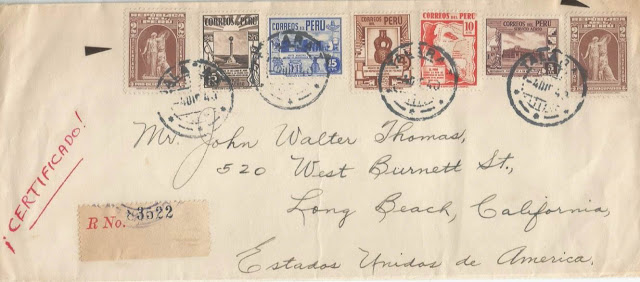 CORREOS DEL PERU
CORREOS DEL PERU
15
CORREOS DEL PERU
CORREOS DEL PERU
10
¡CERTIFICADO!
R No. 83522
Mr. John Walter Thomas,
520 West Burnett St.,
Long Beach, California,
Estados Unidos de America.